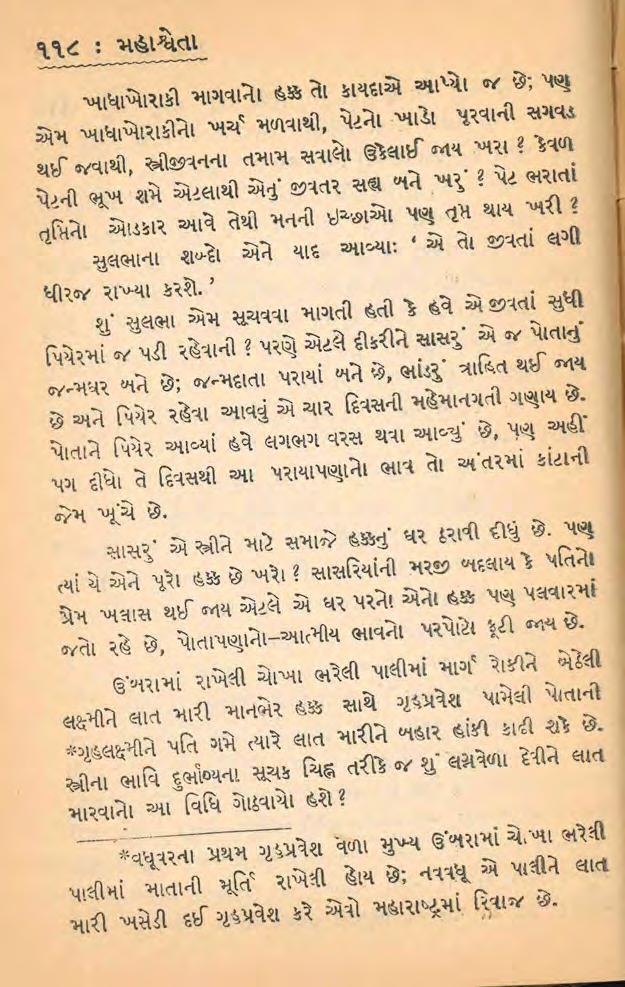 ૧૧૮ : મહાશ્વેતા
ખાધાખોરાકી માગવાનો હક્ક તો કાયદાએ આપ્યો જ છે; પણ
એમ ખાધાખોરાકીનો ખર્ચ મળવાથી, પેટનો ખાડો પૂરવાની સગવડ
થઈ જવાથી, સ્ત્રીજીવનના તમામ સવાલો ઉકેલાઈ જાય ખરા ? કેવળ
પેટની ભૂખ શમે એટલાથી એનું જીવતર સહ્ય બને ખરું ? પેટ ભરાતાં
તૃપ્તિનો ઓડકાર આવે તેથી મનની ઇચ્છાઓ પણ તૃપ્ત થાય ખરી ?
સુલભાના શબ્દો એને યાદ આવ્યાઃ ‘ એ તો જીવતાં લગી
ધીરજ રાખ્યા કરશે. ’
શું સુલભા એમ સૂચવવા માગતી હતી કે હવે એ જીવતાં સુધી
પિયેરમાં જ પડી રહેવાની ? પરણે એટલે દીકરીને સાસરું એ જ પોતાનું
જન્મઘર બને છે; જન્મદાતા પરાયાં બને છે, ભાંડરું ત્રાહિત થઈ જાય
છે અને પિયેર રહેવા આવવું એ ચાર દિવસની મહેમાનગતી ગણાય છે.
પોતાને પિયેર આવ્યાં હવે લગભગ વરસ થવા આવ્યું છે, પણ અહીં
પગ દીધો તે દિવસથી આ પરાયાપણાનો ભાવ તો અંતરમાં કાંટાની
જેમ ખૂંચે છે.
સાસરું એ સ્ત્રીને માટે સમાજે હક્કનું ઘર ઠરાવી દીધું છે. પણ
ત્યાં યે એને પૂરો હક્ક છે ખરો ? સાસરિયાંની મરજી બદલાય કે પતિનો
પ્રેમ ખલાસ થઈ જાય એટલે એ ઘર પરનો એનો હક્ક પણ પલવારમાં
જતો રહે છે, પોતાપણાનો–આત્મીય ભાવનો પરપોટો ફૂટી જાય છે.
ઉંબરામાં રાખેલી ચોખા ભરેલી પાલીમાં માર્ગ રોકીને બેઠેલી
લક્ષ્મીને લાત મારી માનભેર હક્ક સાથે ગૃહપ્રવેશ પામેલી પોતાની
*ગૃહલક્ષ્મીને પતિ ગમે ત્યારે લાત મારીને બહાર હાંકી કાઢી શકે છે.
સ્ત્રીના ભાવિ દુર્ભાગ્યના સૂચક ચિહ્ન તરીકે જ શું લગ્નવેળા દેવીને લાત
મારવાનો આ વિધિ ગોઠવાયો હશે ?
*વધૂવરના પ્રથમ ગૃહપ્રવેશ વેળા મુખ્ય ઉંબરામાં ચોખા ભરેલી
પાલીમાં માતાની મૂર્તિ રાખેલી હોય છે; નવવધૂ એ પાલીને લાત
મારી ખસેડી દઈ ગૃહપ્રવેશ કરે એવો મહારાષ્ટ્રમાં રિવાજ છે.